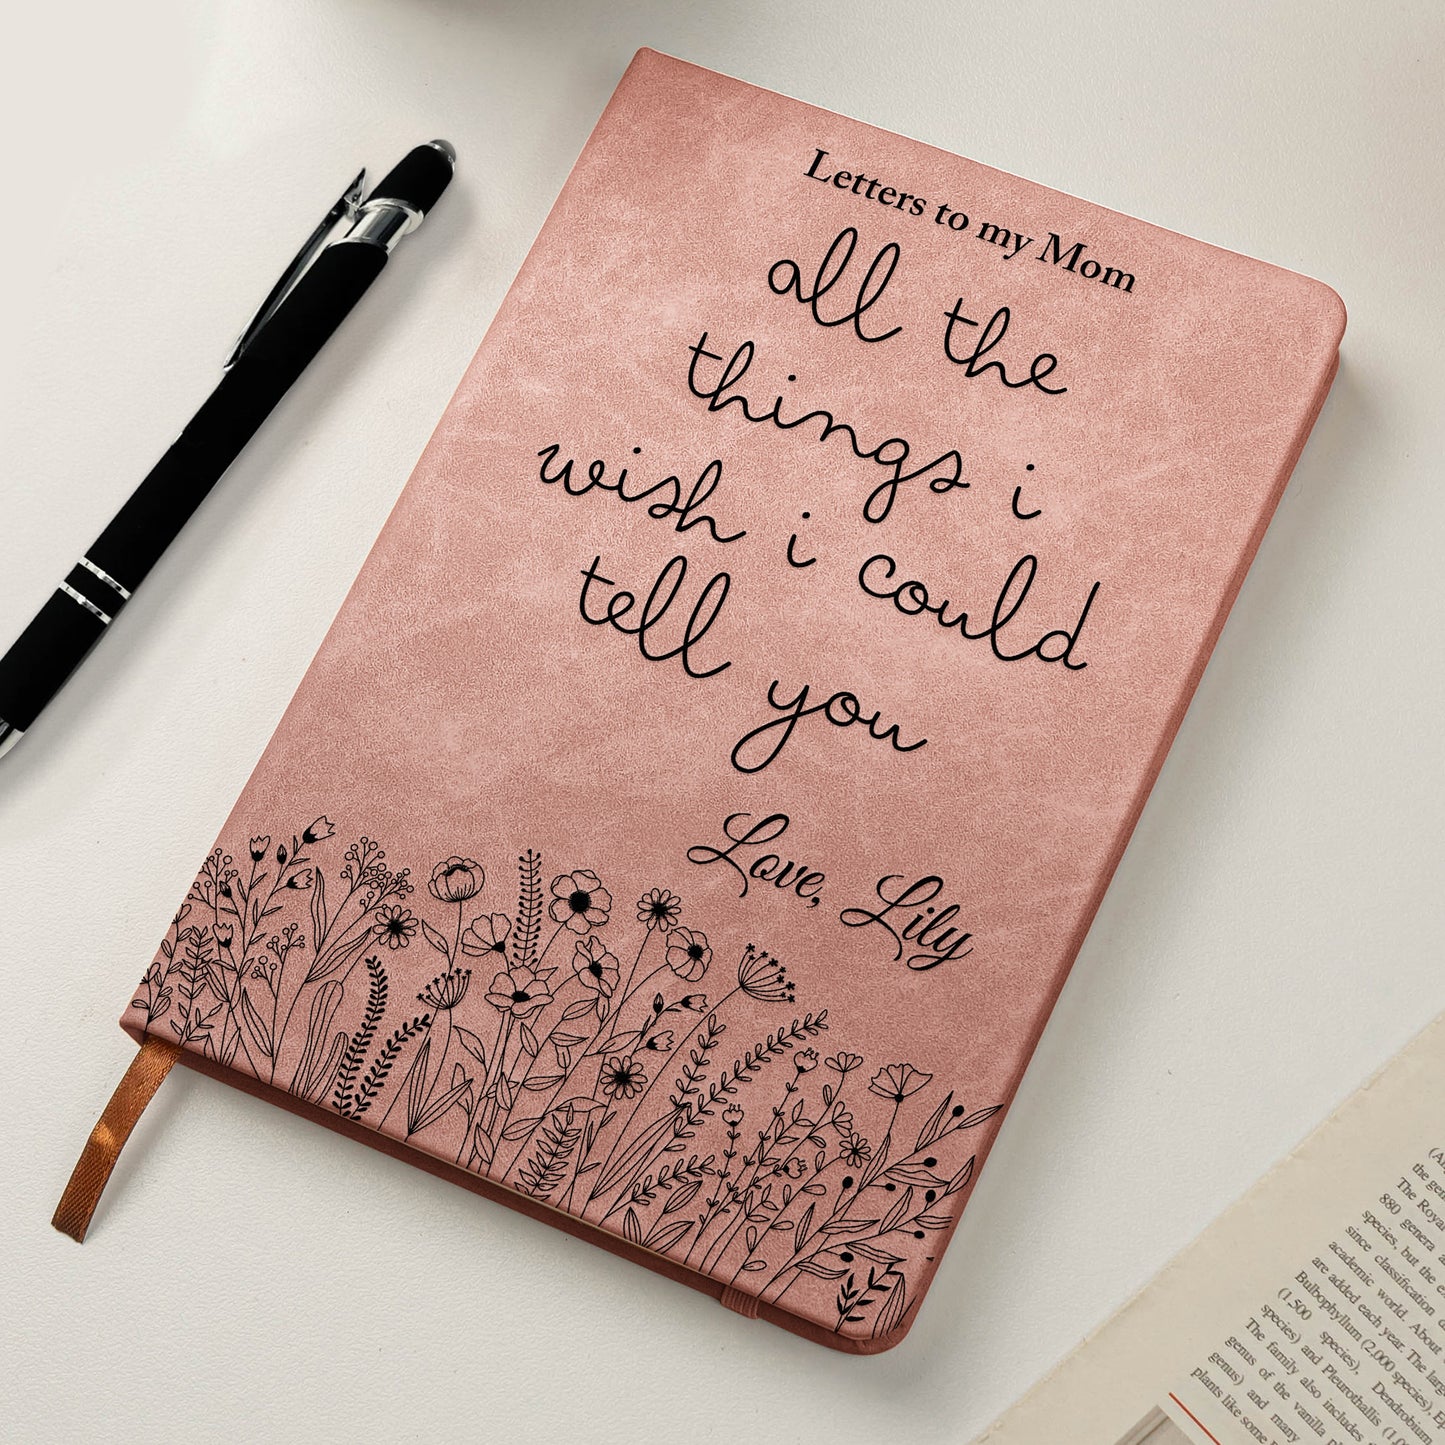 Letters to my Mom
all the
things i
wish i could
tell you
Love, Lily
the gen
The Roya
880 genera a
species, but the e
since classification
academic world. About
are added each year. The larg
Bulbophyllum (2,000 species), Ep
(1,500 species), Dendrobium
species) and Pleurothallis (1,0
The family also includes
genus of the vanilla
genus) and many
plants like some